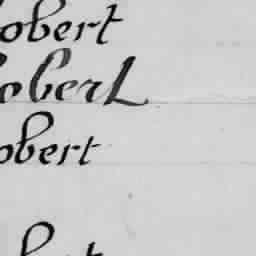 obert
oberL
obert